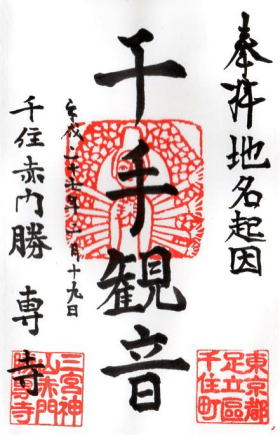 奉拝地名起因
千手観音
平成二十七年一月十九日
千住赤門勝専寺
東京都
足立區
千住町
三宮神
山赤門
勝専寺